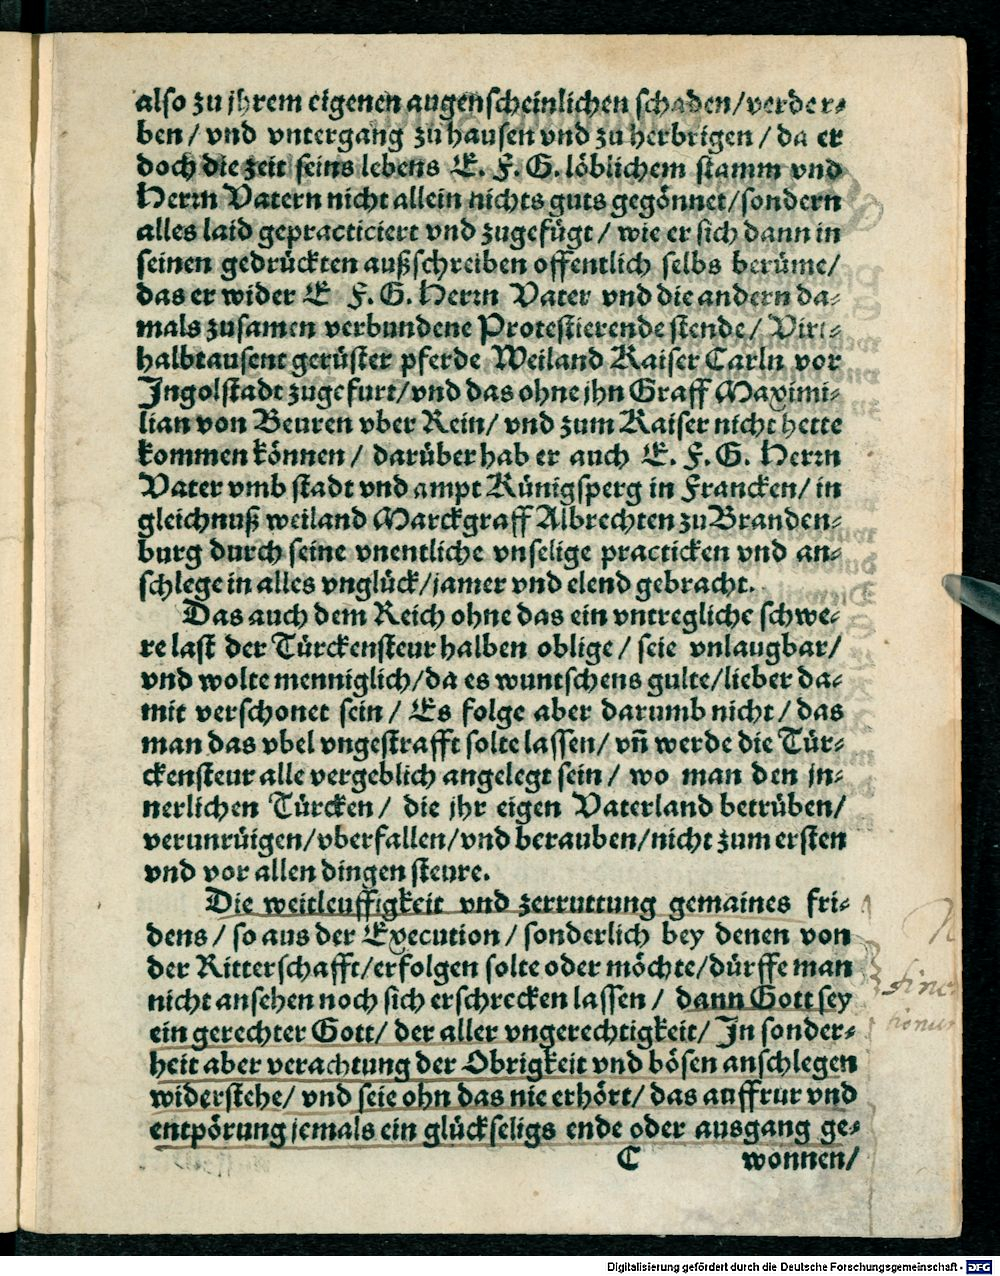 also zu jhrem eigenen augenscheinlichen schaden/verder⸗
ben/ vnd vntergang zu hausen vnd zu herbrigen/ da er
doch die zeit seins lebens E. F. G. löblichem stamm vnd
Herrn Vatern nicht allein nichts guts gegönnet/sondern
alles laid gepracticiert vnd zugefügt/ wie er sich dann in
seinen gedrückten außschreiben offentlich selbs berüme/
das er wider E F. G. Herrn Vater vnd die andern da⸗
mals zusamen verbundene Protestierende stende/ Virt⸗
halbtausent gerüster pferde Weiland Kaiser Carln vor
Jngolstadt zugefurt/vnd das ohne jhn Graff Maximi⸗
lian von Beuren vber Rein/ vnd zum Kaiser nicht hette
kommen können/ darüber hab er auch E. F. G. Herrn
Vater vmb stadt vnd ampt Künigsperg in Francken/ in
gleichnuß weiland Marckgraff Albrechten zu Branden⸗
burg durch seine vnentliche vnselige practicken vnd an⸗
schlege in alles vnglück/jamer vnd elend gebracht.
Das auch dem Reich ohne das ein vntregliche schwe⸗
re last der Türckensteur halben oblige/ seie vnlaugbar/
vnd wolte menniglich/da es wuntschens gulte/lieber da⸗
mit verschonet sein/ Es folge aber darumb nicht/ das
man das vbel vngestrafft solte lassen/ vñ werde die Tür⸗
ckensteur alle vergeblich angelegt sein/ wo man den jn⸗
nerlichen Türcken/ die jhr eigen Vaterland betrüben/
verunrüigen/vberfallen/vnd berauben/nicht zum ersten
vnd vor allen dingen steure.
Die weitleuffigkeit vnd zerruttung gemaines fri⸗
dens/ so aus der Execution/ sonderlich bey denen von
der Ritterschafft/erfolgen solte oder möchte/dürffe man
nicht ansehen noch sich erschrecken lassen/ dann Gott sey
ein gerechter Gott/ der aller vngerechtigkeit/ Jn sonder⸗
heit aber verachtung der Obrigkeit vnd bösen anschlegen
widerstehe/ vnd seie ohn das nie erhört/ das auffrur vnd
entpörung jemals ein glückseligs ende oder ausgang ge⸗
C wonnen/
Digitalisierung gefördert durch die Deutsche Forschungsgemeinschaft - DFG